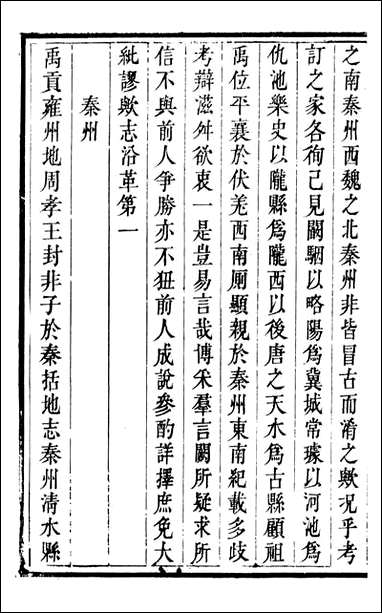 之南秦州西魏之北秦州非皆冒古而淆之歟况乎考
訂之家各徇己見闞駰以略陽爲冀城常璩以河池爲
仇池樂史以隴縣爲隴西以後唐之天水爲古縣顧祖
禹位平襄於伏羌西南厠顯親於秦州東南紀載多歧
考辯滋舛欲衷一是豈易言哉博釆羣言闕所疑求所
信不與前人爭勝亦不狃前人成說參酌詳擇庶免大
紕謬歟志沿革第一
秦州
禹貢雍州地周孝王封非子於秦括地志秦州清水縣